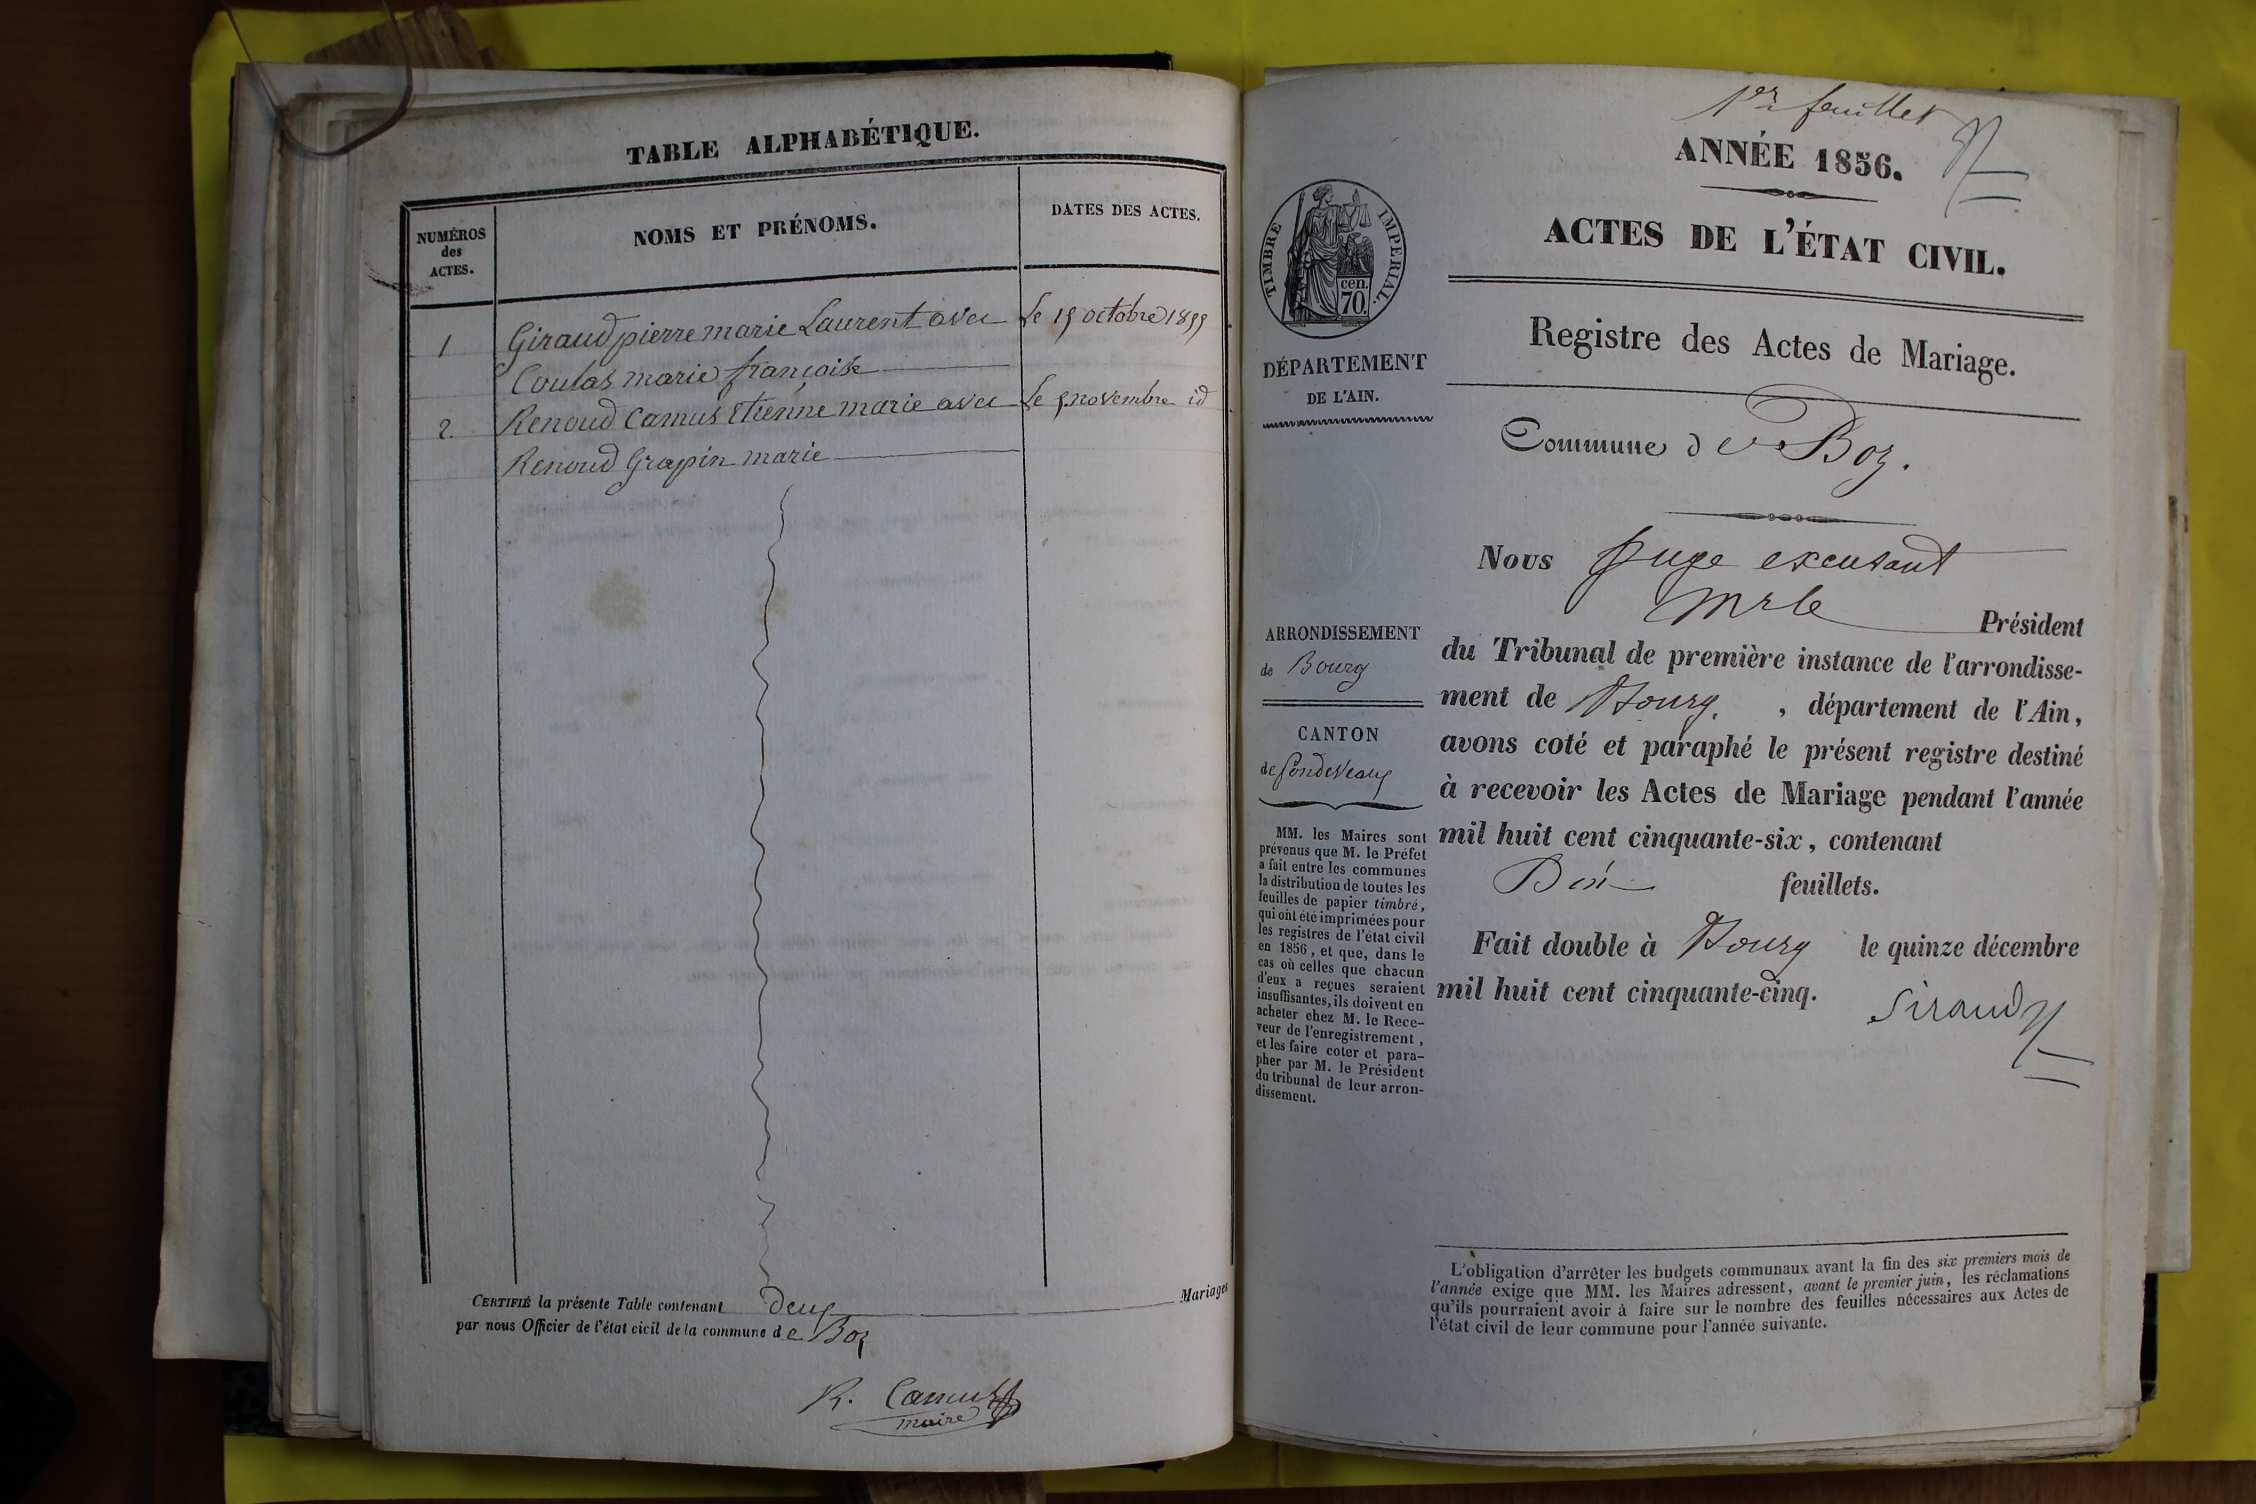 TABLE ALPHABÉTIQUE.
NUMÉROS
des
ACTES.
NOMS ET PRÉNOMS.
DATES DES ACTES.
1 Giraud pierre marie Laurent avec Le 15 octobre 1855
Coulas marie françoise
2. Renoud Camus Etienne marie avec Le 5 novembre id
Renoud Grapin marie
CERTIFIÉ la présente Table contenant deux Mariages
par nous Officier de l'état civil de la commune de Boz
R. Camus
maire
1er feuillet
ANNÉE 1856.
ACTES DE L'ÉTAT CIVIL.
TIMBRE IMPÉRIAL.
cen.
70.
Registre des Actes de Mariage.
DÉPARTEMENT
DE L'AIN.
Commune de Boz.
Nous Juge excusant
Mr le Président
du Tribunal de première instance de l'arrondisse-
ment de Bourg. , département de l'Ain,
avons coté et paraphé le présent registre destiné
à recevoir les Actes de Mariage pendant l'année
mil huit cent cinquante-six, contenant
feuillets.
Fait double à Bourg le quinze décembre
mil huit cent cinquante-cinq.
Siraud
ARRONDISSEMENT
de Bourg
CANTON
de Pondevaux
MM. les Maires sont
prévenus que M. le Préfet
a fait entre les communes
la distribution de toutes les
feuilles de papier timbré,
qui ont été imprimées pour
les registres de l'état civil
en 1856, et que, dans le
cas où celles que chacun
d'eux a reçues seraient
insuffisantes, ils doivent en
acheter chez M. le Rece-
veur de l'enregistrement,
et les faire coter et para-
pher par M. le Président
du tribunal de leur arron-
dissement.
L'obligation d'arrêter les budgets communaux avant la fin des six premiers mois de
l'année exige que MM. les Maires adressent, avant le premier juin, les réclamations
qu'ils pourraient avoir à faire sur le nombre des feuilles nécessaires aux Actes de
l'état civil de leur commune pour l'année suivante.